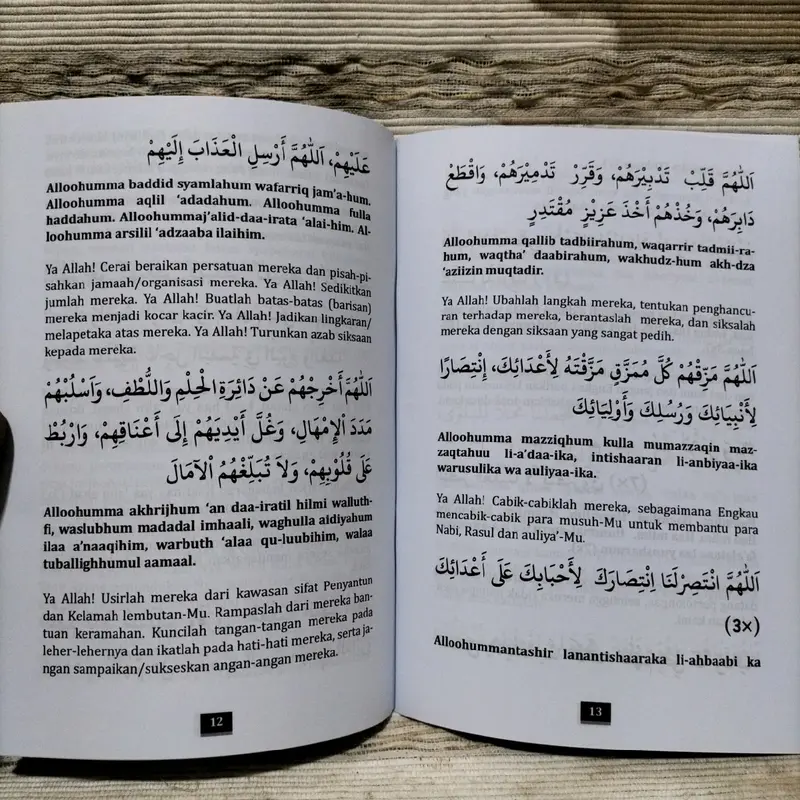 عَلَيْهِمْ، اَللّٰهُمَّ أَرْسِلِ الْعَذَابَ إِلَيْهِمْ
Alloohumma baddid syamlahum wafarriq jam’a-hum.
Alloohumma aqlil ‘adadahum. Alloohumma fulla
haddahum. Alloohummaj’alid-daa-irata ‘alai-him. Al-
loohumma arsilil ‘adzaaba ilaihim.
Ya Allah! Cerai beraikan persatuan mereka dan pisah-pi-
sahkan jamaah/organisasi mereka. Ya Allah! Sedikitkan
jumlah mereka. Ya Allah! Buatlah batas-batas (barisan)
mereka menjadi kocar kacir. Ya Allah! Jadikan lingkaran/
melapetaka atas mereka. Ya Allah! Turunkan azab siksaan
kepada mereka.
اَللّٰهُمَّ أَخْرِجْهُمْ عَنْ دَائِرَةِ الْحِلْمِ وَاللُّطْفِ، وَاَسْلُبْهُمْ
مَدَدَ اْلإِمْهَالِ، وَغُلَّ أَيْدِيَهُمْ إِلَى أَعْنَاقِهِمْ، وَارْبُطْ
عَلَى قُلُوْبِهِمْ، وَلاَ تُبَلِّغْهُمُ اْلآمَالَ
Alloohumma akhrijhum ‘an daa-iratil hilmi walluth-
fi, waslubhum madadal imhaali, waghulla aidiyahum
ilaa a’naaqihim, warbuth ‘alaa qu-luubihim, walaa
tuballighhumul aamaal.
Ya Allah! Usirlah mereka dari kawasan sifat Penyantun
dan Kelamah lembutan-Mu. Rampaslah dari mereka ban-
tuan keramahan. Kuncilah tangan-tangan mereka pada
leher-lehernya dan ikatlah pada hati-hati mereka, serta ja-
ngan sampaikan/sukseskan angan-angan mereka.
12
اَللّٰهُمَّ قَلِّبْ تَدْبِيْرَهُمْ، وَقَرِّرْ تَدْمِيْرَهُمْ، وَاقْطَعْ
دَابِرَهُمْ، وَخُذْهُمْ أَخْذَ عَزِيْزٍ مُقْتَدِرٍ
Alloohumma qallib tadbiirahum, waqarrir tadmii-ra-
hum, waqtha’ daabirahum, wakhudz-hum akh-dza
‘aziizin muqtadir.
Ya Allah! Ubahlah langkah mereka, tentukan penghancu-
ran terhadap mereka, berantaslah mereka, dan siksalah
mereka dengan siksaan yang sangat pedih.
اَللّٰهُمَّ مَزِّقْهُمْ كُلَّ مُمَزَّقٍ مَزَّقْتَهُ لِأَعْدَائِكَ، إِنْتِصَارًا
لِأَنْبِيَائِكَ وَرُسُلِكَ وَأَوْلِيَائِكَ
Alloohumma mazziqhum kulla mumazzaqin maz-
zaqtahuu li-a’daa-ika, intishaaran li-anbiyaa-ika
warusulika wa auliyaa-ika.
Ya Allah! Cabik-cabiklah mereka, sebagaimana Engkau
mencabik-cabik para musuh-Mu untuk membantu para
Nabi, Rasul dan auliya’-Mu.
اَللّٰهُمَّ انْتَصِرْلَنَا اِنْتِصَارَكَ لِأَحْبَابِكَ عَلَى أَعْدَائِكَ
(3×)
Alloohummantashir lanantishaaraka li-ahbaabi ka
13